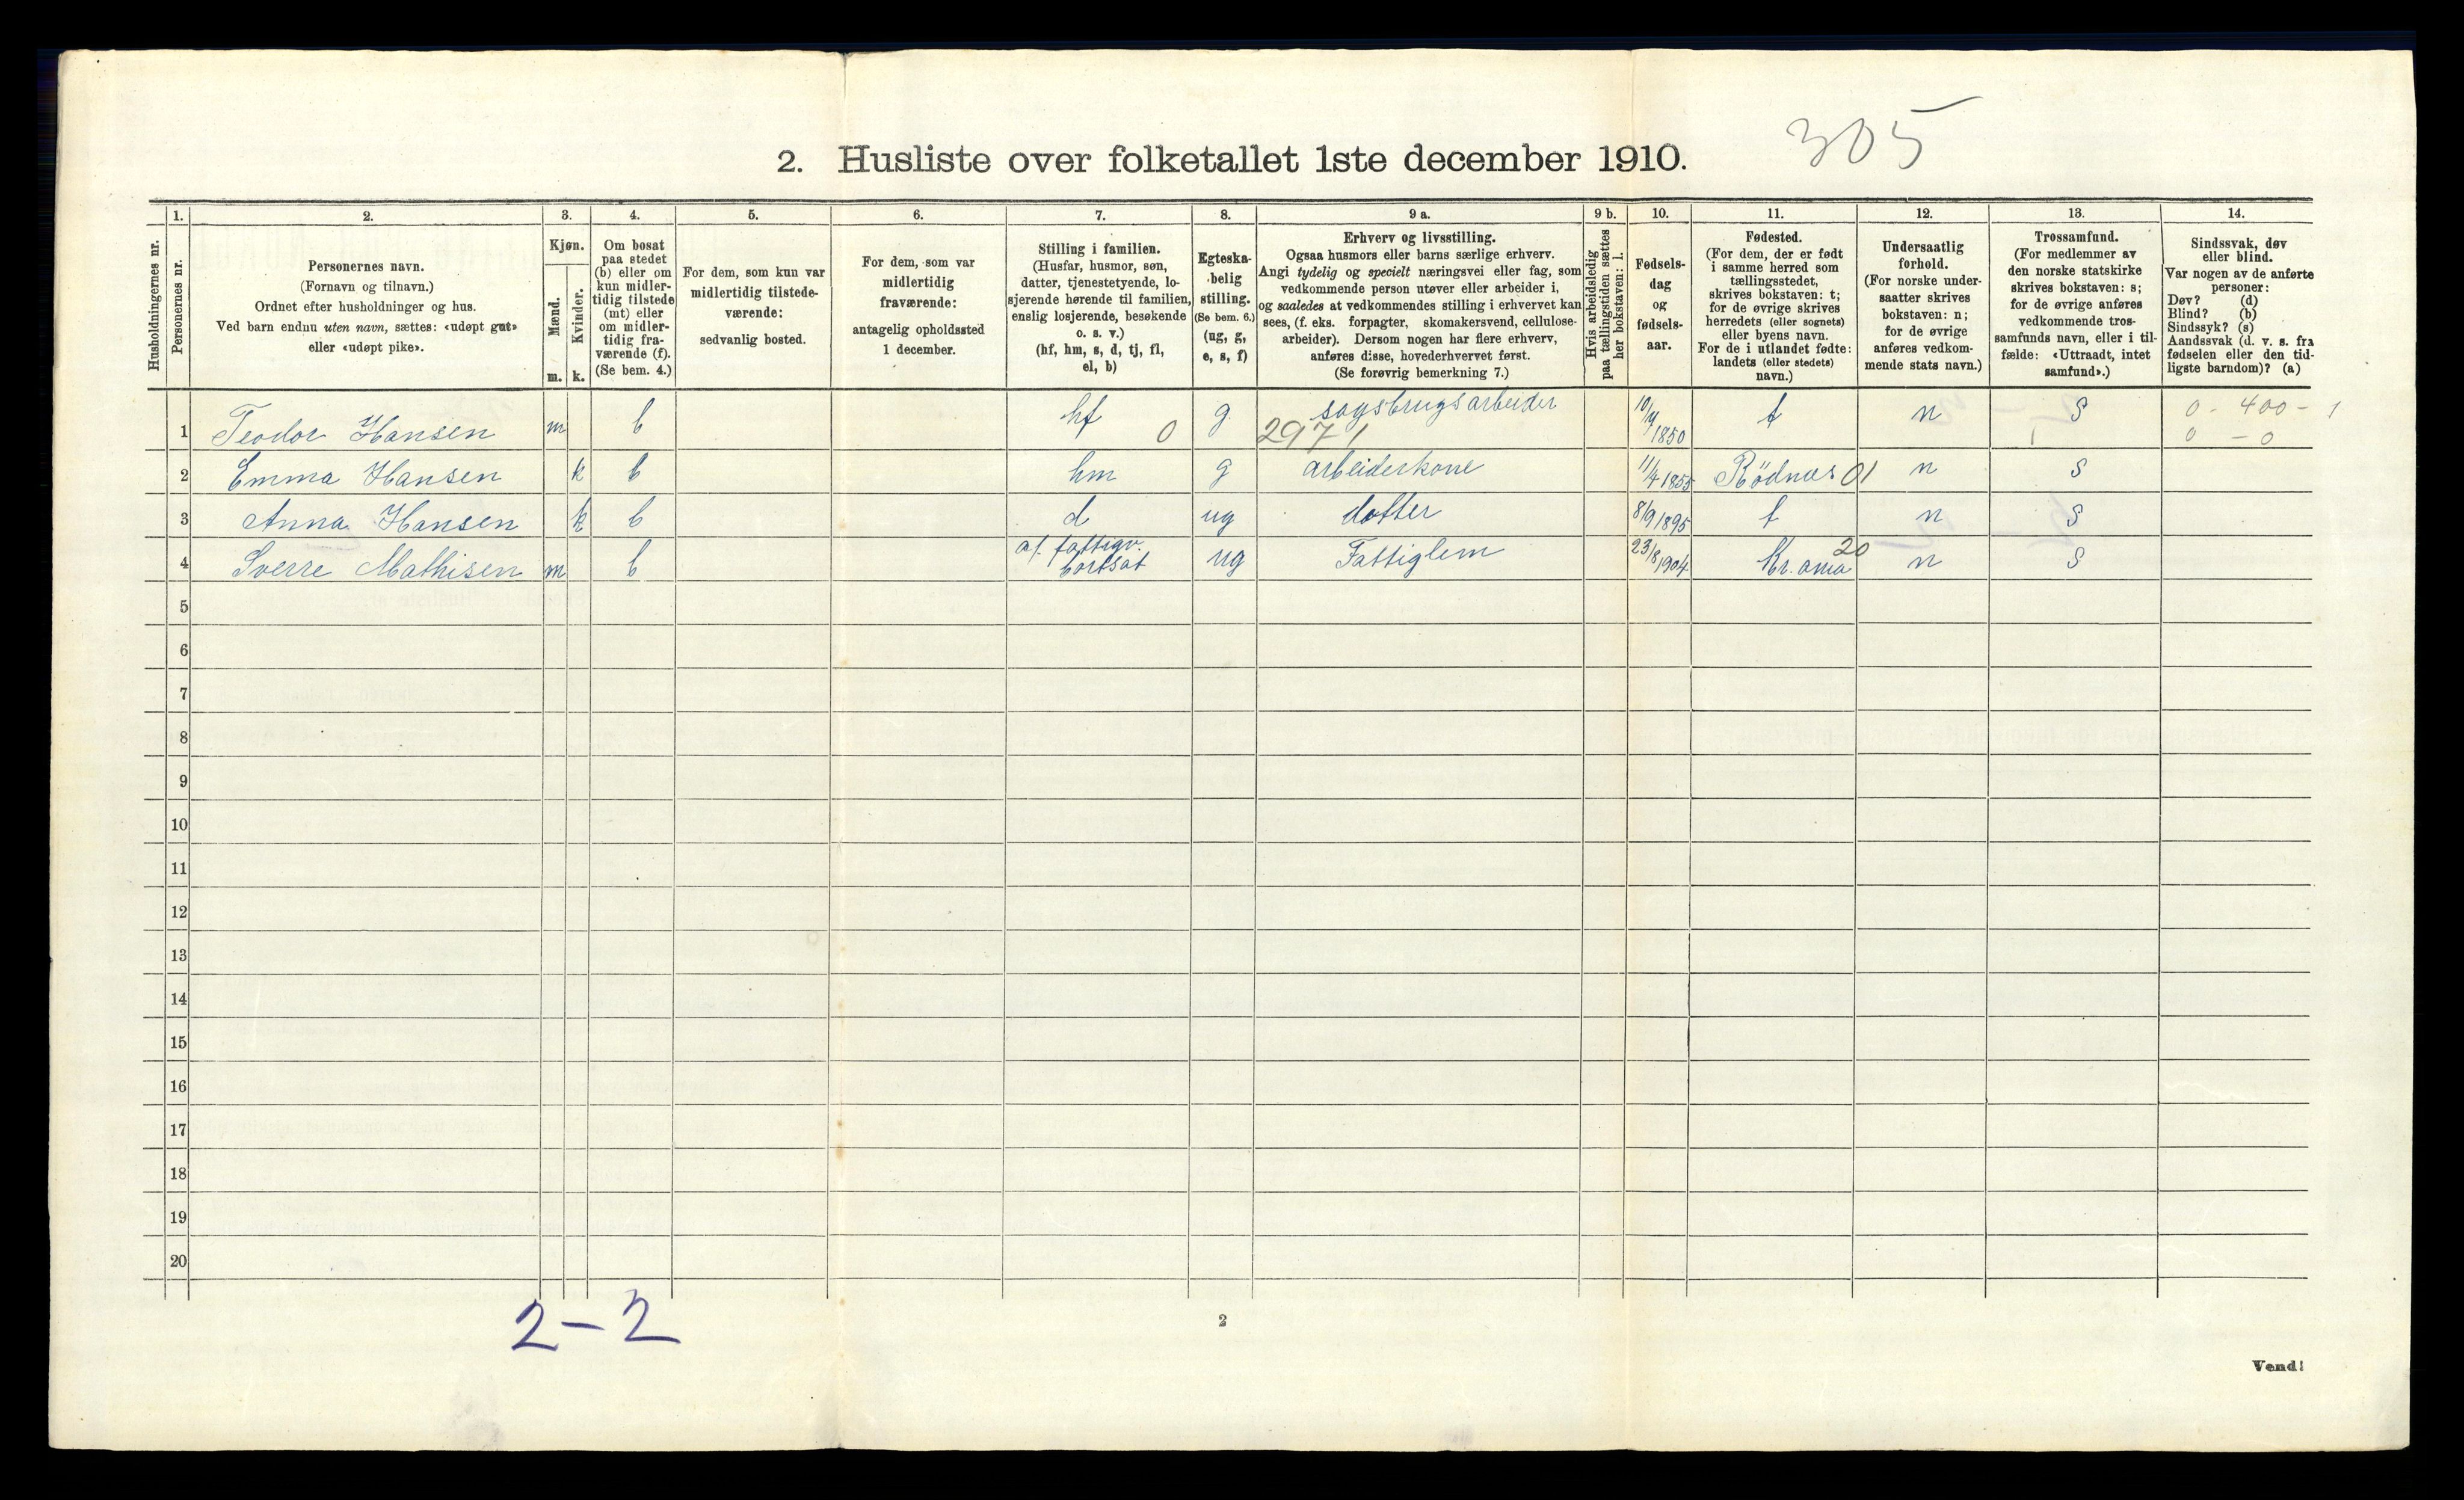 305
2. Husliste over folketallet 1ste december 1910.
Husholdningernes nr.
1.
Personernes nr.
2.
Personernes navn.
(Fornavn og tilnavn.)
Ordnet efter husholdninger og hus.
Ved barn endnu uten navn, sættes: «udøpt gut»
eller «udøpt pike».
3.
Kjøn.
Mænd.
Kvinder.
m. k.
4.
Om bosat
paa stedet
(b) eller om
kun midler-
tidig tilstede
(mt) eller
om midler-
tidig fra-
værende (f).
(Se bem. 4.)
5.
For dem, som kun var
midlertidig tilstede-
værende:
sedvanlig bosted.
6.
For dem, som var
midlertidig
fraværende:
antagelig opholdssted
1 december.
7.
Stilling i familien.
(Husfar, husmor, søn,
datter, tjenestetyende, lo-
sjerende hørende til familien,
enslig losjerende, besøkende
o. s. v.)
(hf, hm, s, d, tj, fl,
el, b)
8.
Egteska-
belig
stilling.
(Se bem. 6.)
(ug, g,
e, s, f)
9 a.
Erhverv og livsstilling.
Ogsaa husmors eller barns særlige erhverv.
Angi tydelig og specielt næringsvei eller fag, som
vedkommende person utøver eller arbeider i,
og saaledes at vedkommendes stilling i erhvervet kan
sees, (f. eks. forpagter, skomakersvend, cellulose-
arbeider). Dersom nogen har flere erhverv,
anføres disse, hovederhvervet først.
(Se forøvrig bemerkning 7.)
9 b.
Hvis arbeidsledig
paa tællingstiden sættes
her bokstaven: l.
10.
Fødsels-
dag
og
fødsels-
aar.
11.
Fødested.
(For dem, der er født
i samme herred som
tællingsstedet,
skrives bokstaven: t;
for de øvrige skrives
herredets (eller sognets)
eller byens navn.
For de i utlandet fødte:
landets (eller stedets)
navn.)
12.
Undersaatlig
forhold.
(For norske under-
saatter skrives
bokstaven: n;
for de øvrige
anføres vedkom-
mende stats navn.)
13.
Trossamfund.
(For medlemmer av
den norske statskirke
skrives bokstaven: s;
for de øvrige anføres
vedkommende tros-
samfunds navn, eller i til-
fælde: «Uttraadt, intet
samfund».)
14.
Sindssvak, døv
eller blind.
Var nogen av de anførte
personer:
Døv? (d)
Blind? (b)
Sindssyk? (s)
Aandssvak (d. v. s. fra
fødselen eller den tid-
ligste barndom)? (a)
1 Teodor Hansen m b hf 0 g sagsbrugsarbeider 2971 10/4 1850 t n s 0 - 400 - 1
0 - 0
2 Emma Hansen k b hm g arbeiderkone 11/4 1855 Rödnæs 01 n s
3 Anna Hansen k b d ug datter 8/9 1895 t n s
4 Sverre Mathisen m b af fattigv. bortsat ug Fattiglem 23/8 1904 Kr.ania 20 n s
5
6
7
8
9
10
11
12
13
14
15
16
17
18
19
20
2 - 2
2
Vend!